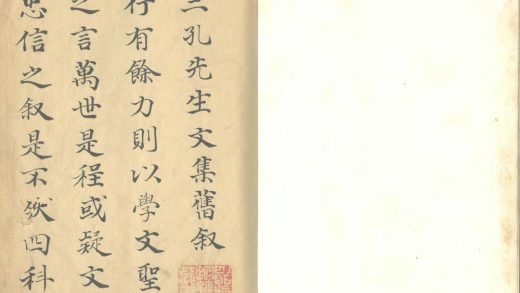 三孔先生文集舊叙
行有餘力則以學文聖
之言萬世是程或疑文
忠信之叙是不肰四科